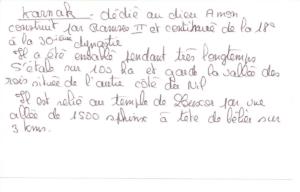 Karnak - dédié au dieu Amon
construit par Ramses II et continué de la 18e
à la 30ième dynastie
Il a été ensablé pendant très longtemps
S'étale sur 100 ha et garde la vallée des
rois située de l'autre côté du Nil
Il est relié au temple de Luxor par une
allée de 1500 sphinx à tête de bélier sur
3 kms.